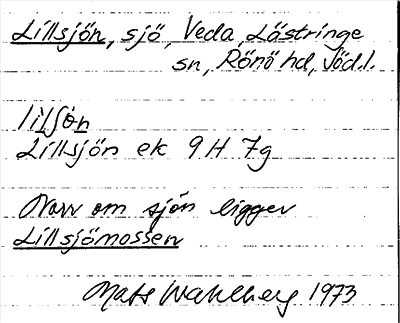 Lillsjön, sjö, Veda, Lästringe
sn, Rönö hd, Södl.
lilſön
Lillsjön ek 9H 7g
Norr om sjön ligger
Lillsjömossen
Mats Wahlberg 1973